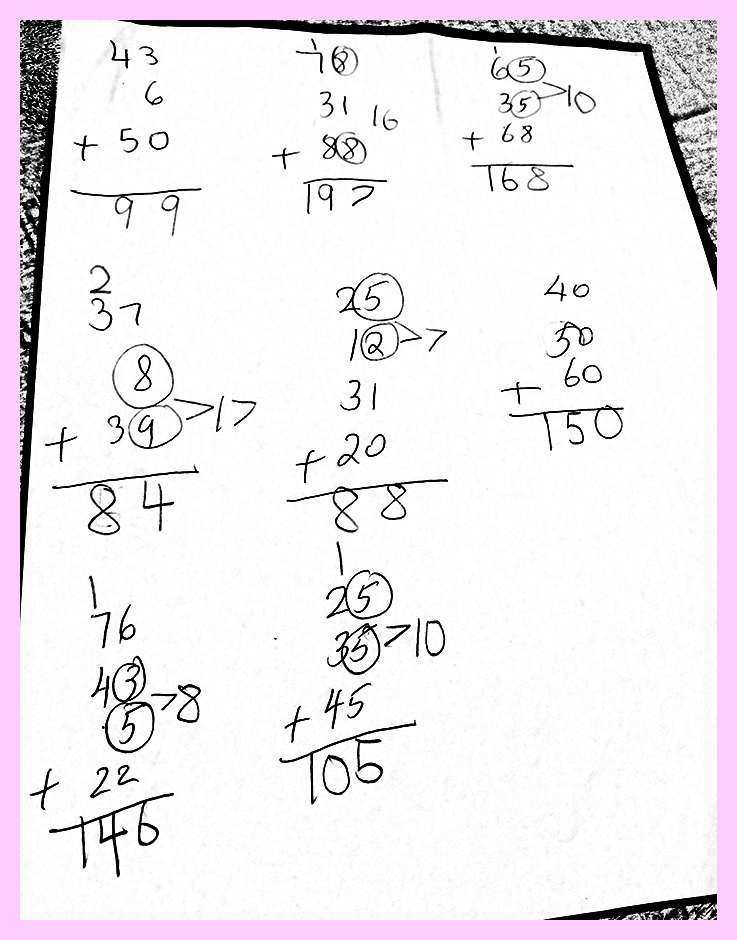 43
6
+ 50
99
1
78
31 16
+ 88
197
1
65
35 >10
+ 68
168
2
37
8
+ 39 >17
84
25
12 >7
31
+ 20
88
40
50
+ 60
150
1
76
43
5 >8
+ 22
146
1
25
35 >10
+ 45
105